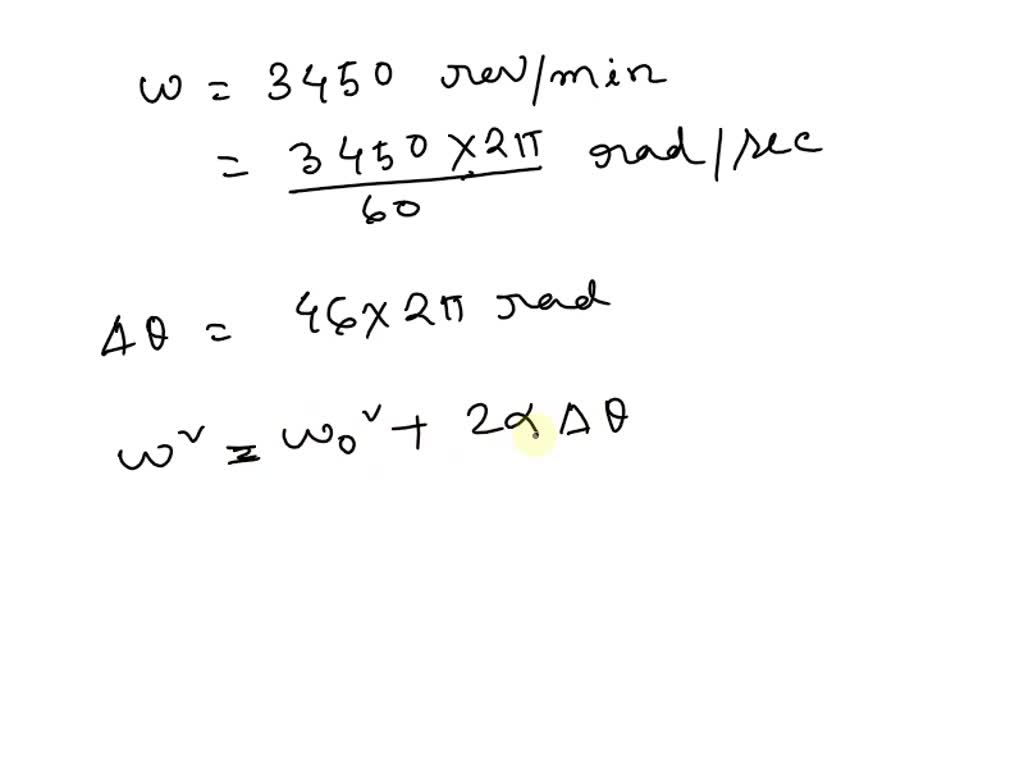 ω = 3450 rev/min
= 3450 × 2π / 60 rad/sec
Δθ = 46 × 2π rad
ω² = ω₀² + 2αΔθ